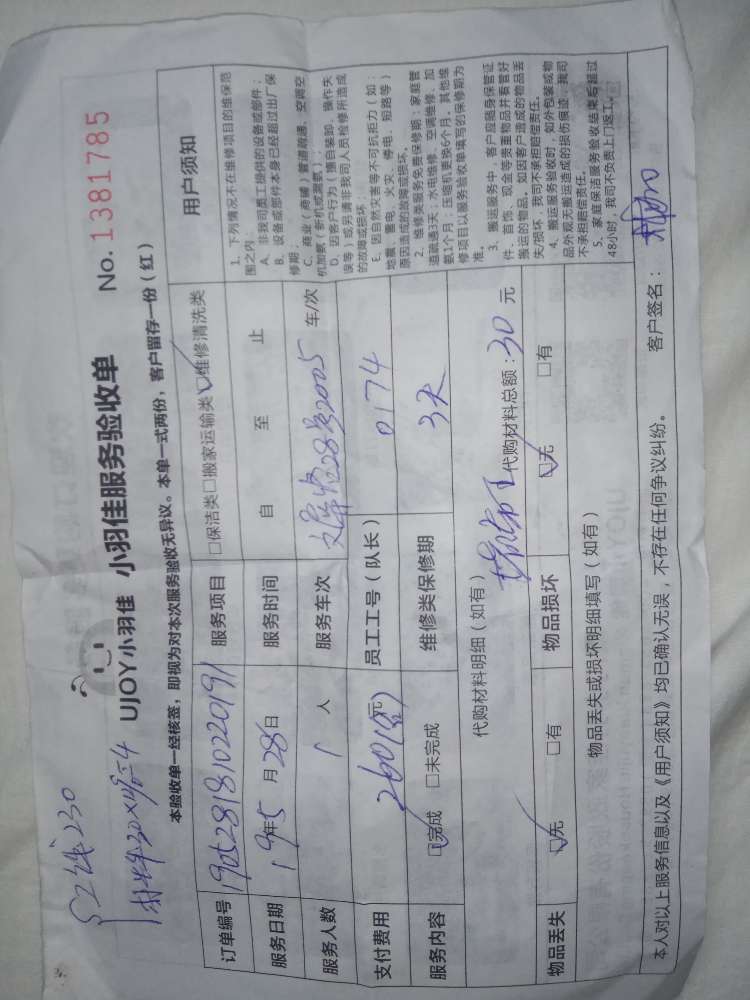 UJOY小羽佳 小羽佳服务验收单 No. 1381785
本验收单一经核签，即视为对本次服务验收无异议。本单一式两份，客户留存一份（红）
订单编号 190528181022019 服务项目 □保洁类□搬家运输类☑维修清洗类
服务日期 19年5月28日 服务时间 自 至 止
服务人数 1人 服务车次 28号2005 车/次
支付费用 260(含)元 员工工号（队长） 0174
服务内容 ☑完成 □未完成 维修类保修期 3天
代购材料明细（如有） 代购材料总额：30元
物品丢失 ☑无 □有 物品损坏 ☑无 □有
物品丢失或损坏明细填写（如有）
用户须知
1、下列情况不在维修项目的维保范
围之内：
A、非我司员工提供的设备或部件；
B、设备或部件本身已经超过出厂保
修期；
C、商业（商铺）管道疏通、空调空
机加氨（新机或测氨）；
D、因客户行为（擅自装卸、操作失
误等）或另请非我司人员检修所造成
的故障或损坏；
E、因自然灾害等不可抗拒力（如：
地震、雷电、火灾、停电、短路等）
原因造成的故障或损坏。
2、维修类服务免费保修期：家庭管
道疏通3天；水电维修、空调维修、加
氨1个月；压缩机更换6个月，其他维
修项目以服务验收单填写的保修期为
准。
3、搬运服务中，客户应随身保管证
件、首饰、现金等贵重物品并看管好
搬运的物品，如因客户造成的物品丢
失/损坏，我司不承担赔偿责任。
4、搬运服务验收时，如外包装或物
品外观无搬运造成的损伤痕迹，我司
不承担赔偿责任。
5、家庭保洁服务验收结束后超过
48小时，我司不负责上门返工。
本人对以上服务信息以及《用户须知》均已确认无误，不存在任何争议纠纷。 客户签名：